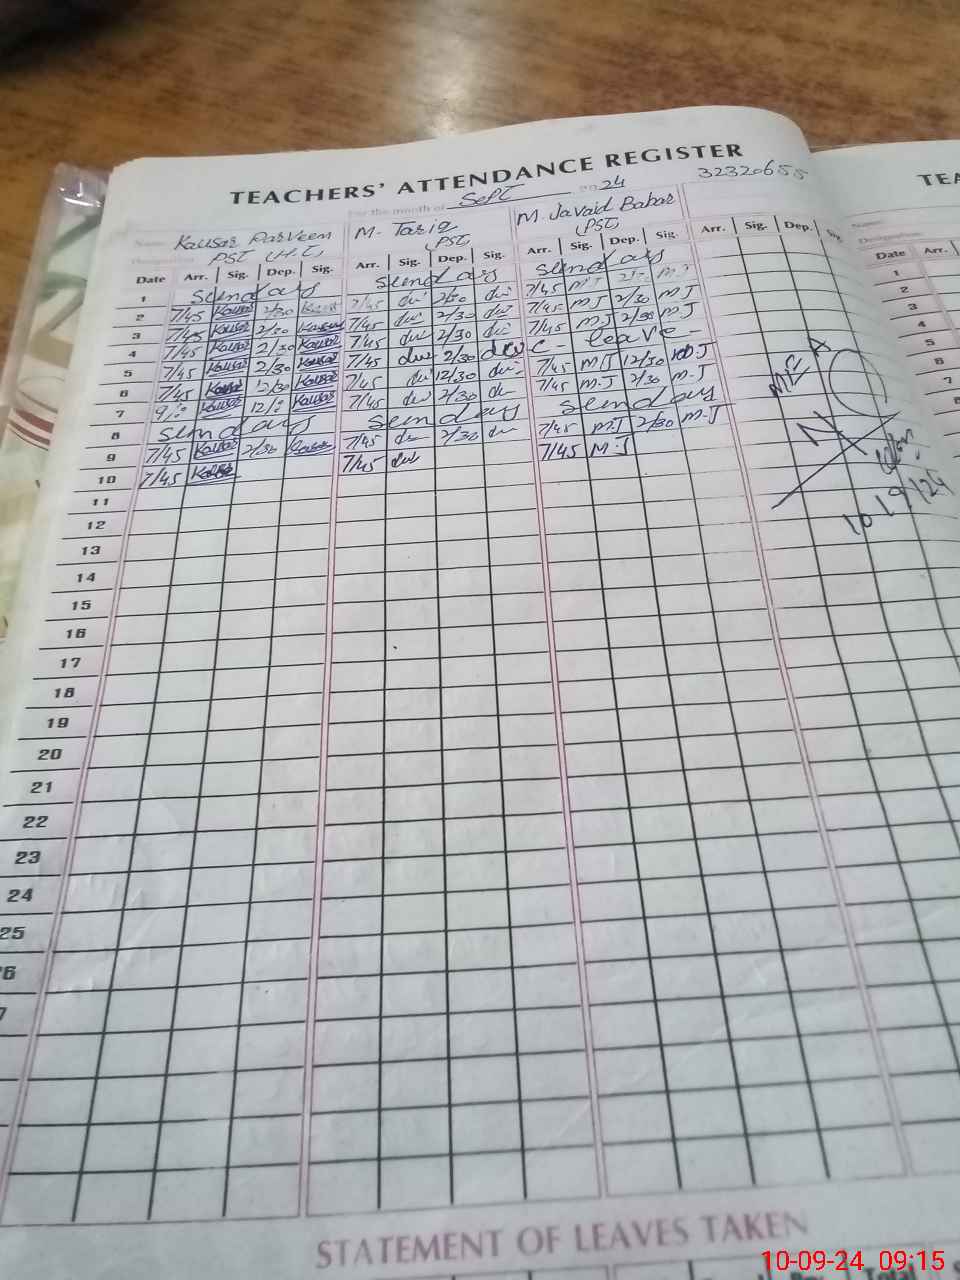 TEACHERS' ATTENDANCE REGISTER
For the month of Sept 2024 32320655
TEA
Name Kausar Parveen M. Tariq M. Javaid Babar
Designation PST (H.T) (PST) (PST)
Date Arr. Sig. Dep. Sig. Arr. Sig. Dep. Sig. Arr. Sig. Dep. Sig. Arr. Sig. Dep. Sig.
Name:
Designation:
Date Arr.
1 Sunday Sunday Sunday
2 7/45 Kausar 2/30 Kausar 7/45 2/30 7/45 MJ 2/30 MJ
3 7/45 Kausar 2/30 Kausar 7/45 2/30 7/45 MJ 2/30 MJ
4 7/45 Kausar 2/30 Kausar 7/45 2/30 7/45 MJ 2/30 MJ
5 7/45 Kausar 2/30 Kausar 7/45 2/30 C - leave -
6 7/45 Kausar 12/30 Kausar 7/45 12/30 7/45 M.J 12/30 M.J
7 9/: Kausar 12/: Kausar 7/45 2/30 7/45 M.J 2/30 M.J
8 Sunday Sunday Sunday
9 7/45 Kausar 2/30 Kausar 7/45 2/30 7/45 M.J 2/30 M.J
10 7/45 Kausar 7/45 7/45 M.J
11
12
13
14
15
16
17
18
19
20
21
22
23
24
25
6
7
1
2
3
4
5
6
7
MEA
10/9/24
STATEMENT OF LEAVES TAKEN
10-09-24 09:15